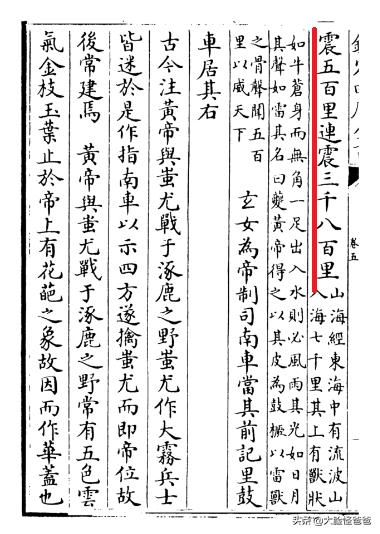 卷五
震五百里連震三千八百里
山海經東海中有流波山
入海七千里其上有獸狀
如牛蒼身而無角一足出入水則必風雨其光如日月
其聲如雷其名曰夔黃帝得之以其皮為鼓橛以雷獸
之骨聲聞五百
里以威天下
玄女為帝制司南車當其前記里鼓
車居其右
古今注黃帝與蚩尤戰于涿鹿之野蚩尤作大霧兵士
皆迷於是作指南車以示四方遂擒蚩尤而即帝位故
後常建焉 黃帝與蚩尤戰于涿鹿之野常有五色雲
氣金枝玉葉止於帝上有花葩之象故因而作華蓋也
头条 @大脸怪爸爸